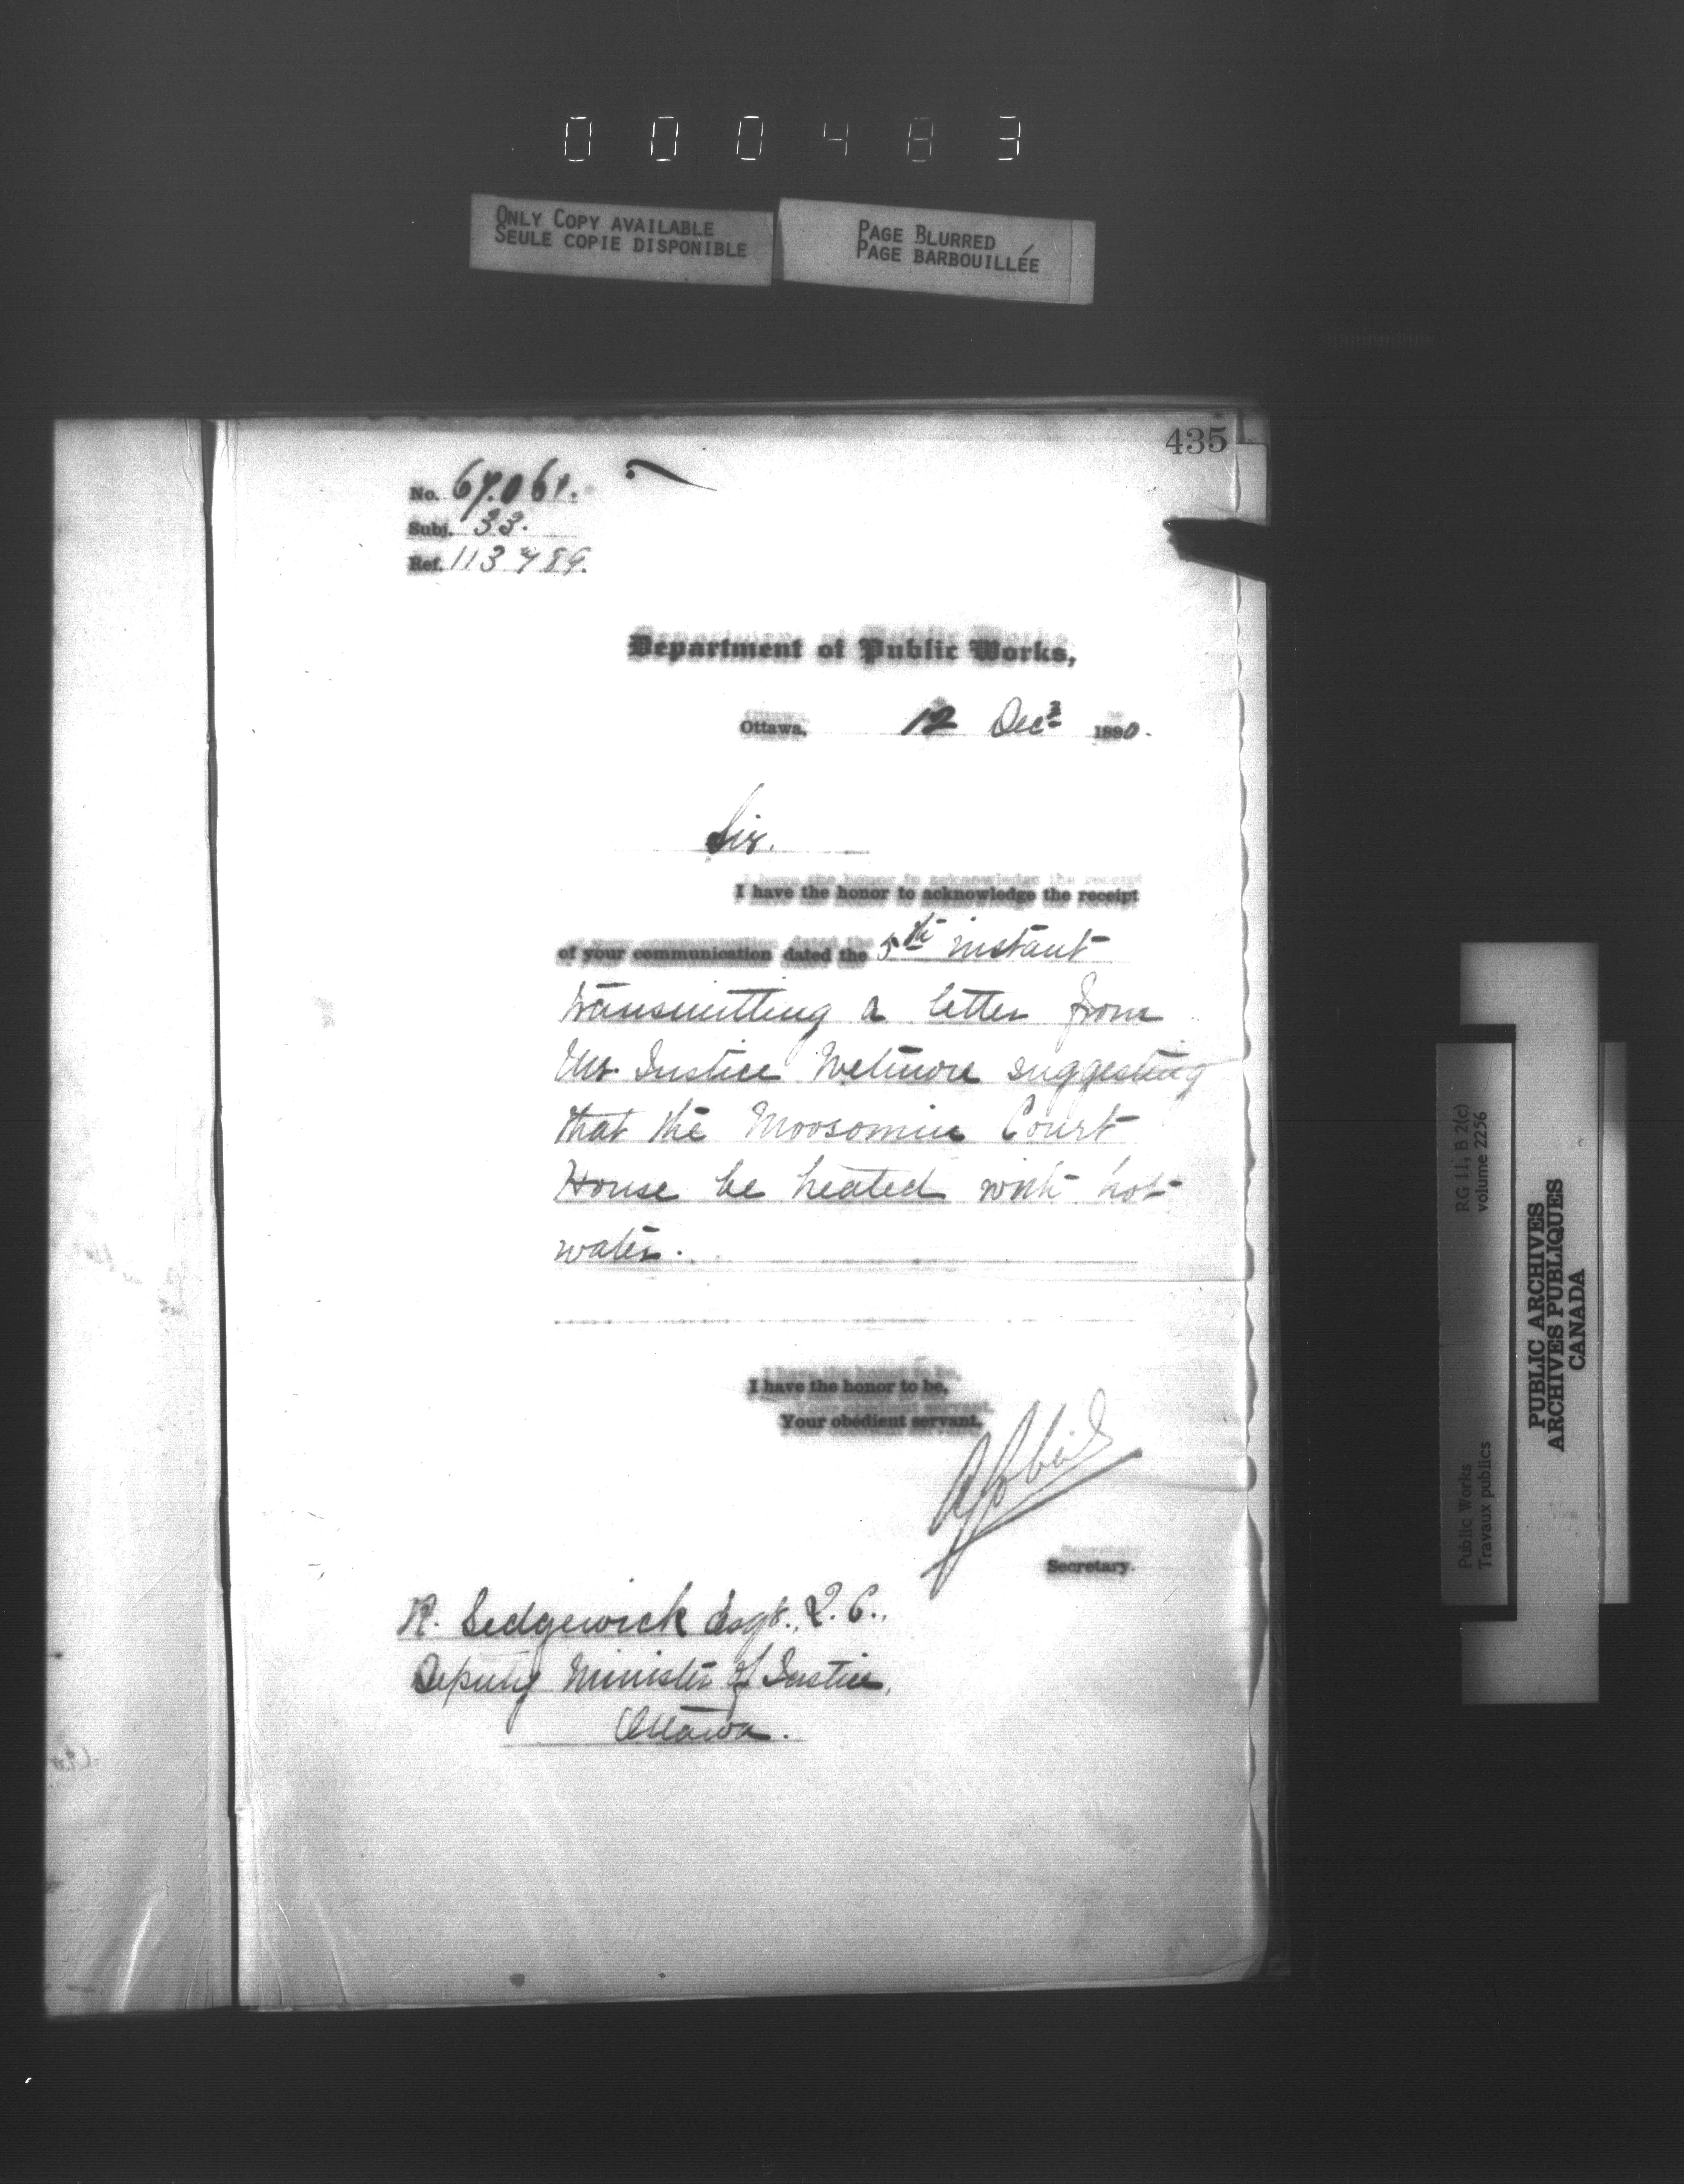 000483
ONLY COPY AVAILABLE
SEULE COPIE DISPONIBLE
PAGE BLURRED
PAGE BARBOUILLÉE
435
No. 67061.
Subj. 33.
Ref. 113789.
Department of Public Works,
Ottawa, 12 Decr 1890.
Sir.
I have the honor to acknowledge the receipt
of your communication dated the 5th instant
transmitting a letter from
Mr. Justice Wetmore suggesting
that the Moosomin Court
House be heated with hot
water.
I have the honor to be,
Your obedient servant,
Secretary.
R. Sedgewick Esqr., Q.C.,
Deputy Minister of Justice,
Ottawa.
Public Works
Travaux publics
RG 11, B 2(c)
volume 2256
PUBLIC ARCHIVES
ARCHIVES PUBLIQUES
CANADA